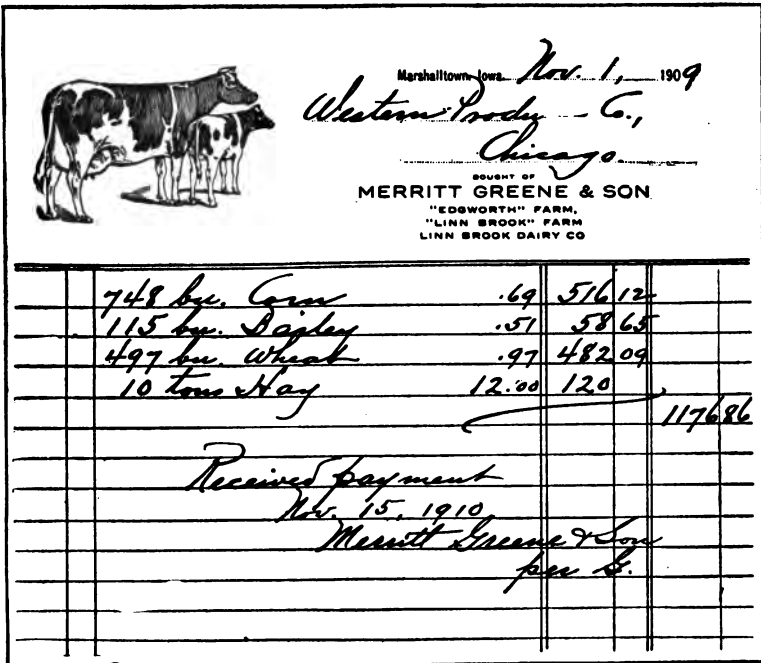 Marshalltown, Iowa. Nov. 1, 1909
Western Produ - Co.,
Chicago
BOUGHT OF
MERRITT GREENE & SON
"EDGWORTH" FARM,
"LINN BROOK" FARM
LINN BROOK DAIRY CO
748 bu. Corn .69 516 12
115 bu. Barley .51 58 65
497 bu. Wheat .97 482 09
10 tons Hay 12.00 120
1176 86
Received payment
Nov. 15, 1910
Merritt Greene & Son
per G.